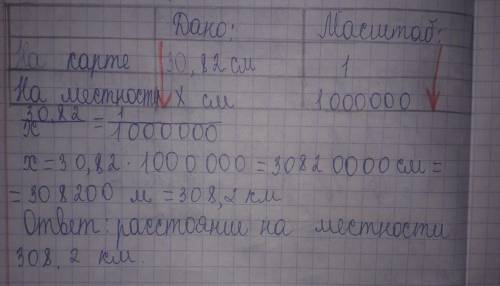 Дано: Масштаб:
На карте 30,82 см 1
На местност X см 1000000
30,82/x = 1/1000000
x = 30,82 · 1000 000 = 3082 0000 см =
= 308200 м = 308,2 км
Ответ: расстояни на местности
308,2 км.